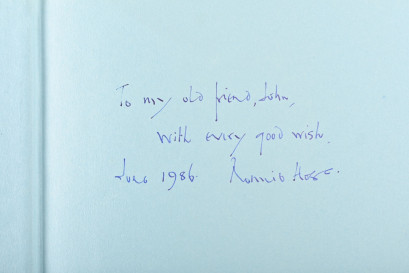 To my old friend, John,
with every good wish.
June 1986. Ronnie